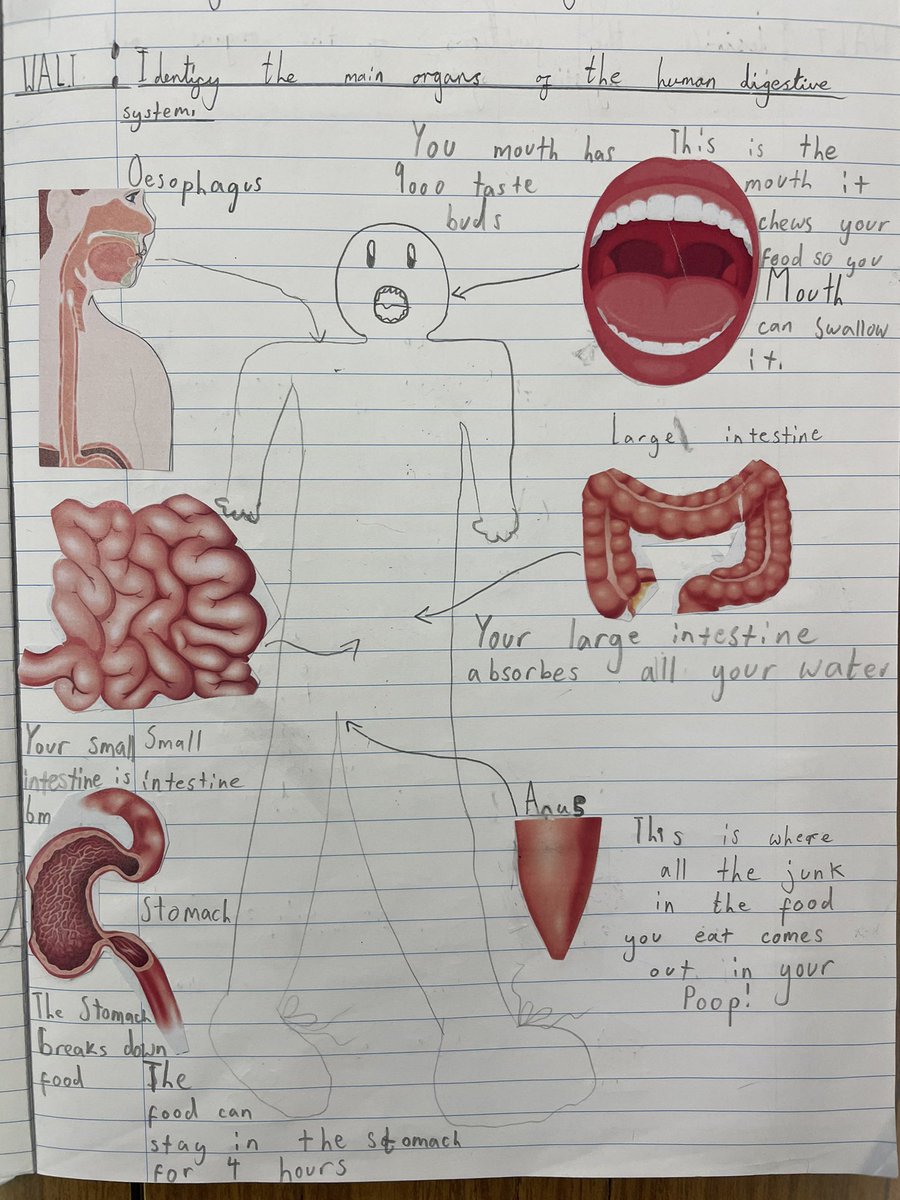 WALT : Identify the main organs of the human digestive
system.
Oesophagus
You mouth has
9000 taste
buds
This is the
mouth it
chews your
food so you
Mouth
can swallow
it.
Large intestine
Your large intestine
absorbes all your water
Your small
intestine is
6m
Small
intestine
Stomach
The Stomach
breaks down
food
The
food can
stay in the stomach
for 4 hours
Anus
This is where
all the junk
in the food
you eat comes
out in your
Poop!